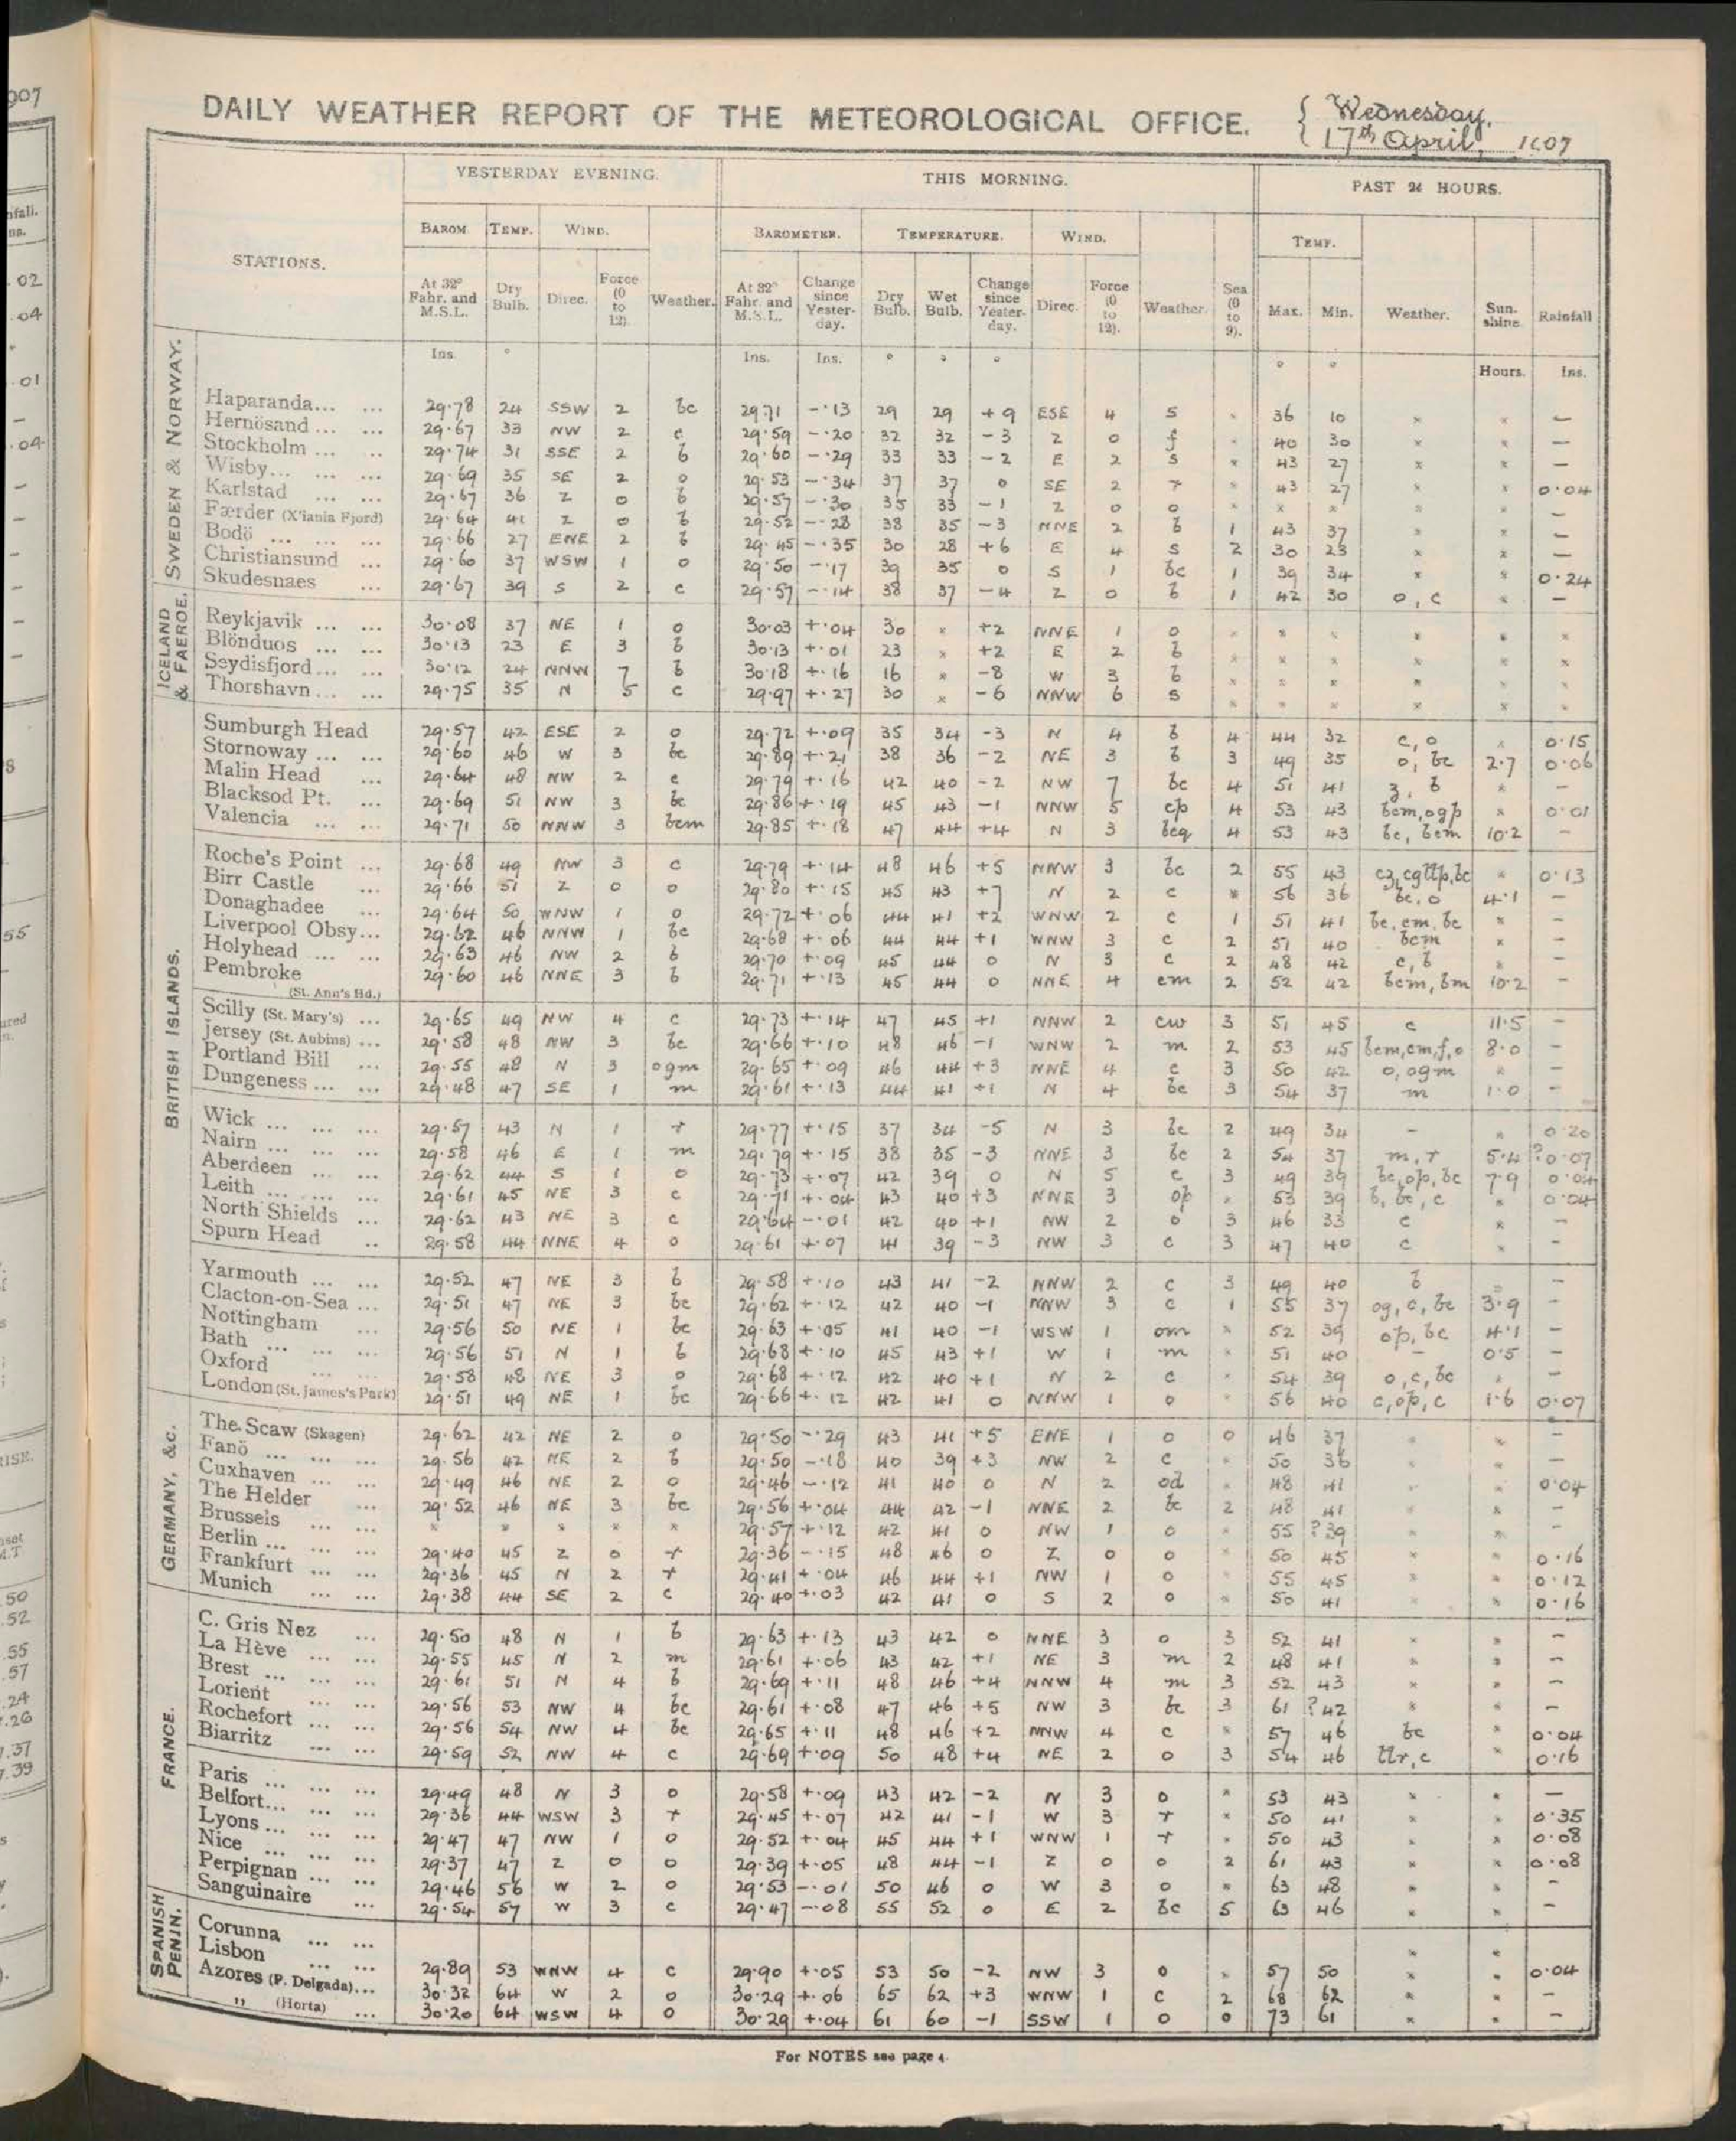 DAILY WEATHER REPORT OF THE METEOROLOGICAL OFFICE.
Wednesday,
17th April, 1907
YESTERDAY EVENING. THIS MORNING. PAST 24 HOURS.
STATIONS. BAROM. TEMP. WIND. BAROMETER. TEMPERATURE. WIND. TEMP.
At 32° Fahr. and M.S.L. Dry Bulb. Direc. Force (0 to 12). Weather. At 32° Fahr. and M.S.L. Change since Yesterday. Dry Bulb. Wet Bulb. Change since Yesterday. Direc. Force (0 to 12). Weather. Sea (0 to 9). Max. Min. Weather. Sunshine. Rainfall
Ins. ° Ins. Ins. ° ° ° ° ° Hours. Ins.
SWEDEN & NORWAY.
Haparanda... 29.78 24 SSW 2 bc 29.71 -.13 29 29 +9 ESE 4 s × 36 10 × × —
Hernösand ... 29.67 33 NW 2 c 29.59 -.20 32 32 -3 Z 0 f × 40 30 × × —
Stockholm ... 29.74 31 SSE 2 b 29.60 -.29 33 33 -2 E 2 s × 43 27 × × —
Wisby... 29.69 35 SE 2 o 29.53 -.34 37 37 0 SE 2 r × 43 27 × × 0.04
Karlstad ... 29.67 36 Z 0 b 29.57 -.30 35 33 -1 Z 0 o × × × × × —
Færder (X'iania Fjord) 29.64 41 Z 0 b 29.52 -.28 38 35 -3 NNE 2 b 1 43 37 × × —
Bodö ... 29.66 27 ENE 2 b 29.45 -.35 30 28 +6 E 4 s 2 30 23 × × —
Christiansund ... 29.60 37 WSW 1 o 29.50 -.17 39 35 0 S 1 bc 1 39 34 × × 0.24
Skudesnaes ... 29.67 39 S 2 c 29.57 -.14 38 37 -4 Z 0 b 1 42 30 o, c × —
ICELAND & FAEROE.
Reykjavik ... 30.08 37 NE 1 o 30.03 +.04 30 × +2 NNE 1 o × × × × × ×
Blönduos ... 30.13 23 E 3 b 30.13 +.01 23 × +2 E 2 b × × × × × ×
Seydisfjord ... 30.12 24 NNW 7 b 30.18 +.16 16 × -8 W 3 b × × × × × ×
Thorshavn ... 29.75 35 N 5 c 29.97 +.27 30 × -6 NNW 6 s × × × × × ×
BRITISH ISLANDS.
Sumburgh Head 29.57 42 ESE 2 o 29.72 +.09 35 34 -3 N 4 b 4 44 32 c, o × 0.15
Stornoway ... 29.60 46 W 3 bc 29.89 +.21 38 36 -2 NE 3 b 3 49 35 o, bc 2.7 0.06
Malin Head ... 29.64 48 NW 2 c 29.79 +.16 42 40 -2 NW 7 bc 4 51 41 z, b × -
Blacksod Pt. ... 29.69 51 NW 3 bc 29.86 +.19 45 43 -1 NNW 5 cp 4 53 43 bcm, ogp × 0.01
Valencia ... 29.71 50 NNW 3 bcm 29.85 +.18 47 44 +4 N 3 bcq 4 53 43 bc, bcm 10.2 -
Roche's Point ... 29.68 49 NW 3 c 29.79 +.14 48 46 +5 NNW 3 bc 2 55 43 cz, cgtlp, bc × 0.13
Birr Castle ... 29.66 51 Z 0 o 29.80 +.15 45 43 +7 N 2 c × 56 36 bc, o 4.1 -
Donaghadee ... 29.64 50 WNW 1 o 29.72 +.06 44 41 +2 WNW 2 c 1 51 41 bc, cm, bc × -
Liverpool Obsy... 29.62 46 NNW 1 bc 29.68 +.06 44 44 +1 WNW 3 c 2 51 40 bcm × -
Holyhead ... 29.63 46 NW 2 b 29.70 +.09 45 44 0 N 3 c 2 48 42 c, b × -
Pembroke (St. Ann's Hd.) 29.60 46 NNE 3 b 29.71 +.13 45 44 0 NNE 4 cm 2 52 42 bcm, bm 10.2 -
Scilly (St. Mary's) ... 29.65 49 NW 4 c 29.73 +.14 47 45 +1 NNW 2 cw 3 51 45 c 11.5 -
Jersey (St. Aubins) ... 29.58 48 NW 3 bc 29.66 +.10 48 46 -1 WNW 2 m 2 53 45 bcm, cm, f, o 8.0 -
Portland Bill ... 29.55 48 N 3 ogm 29.65 +.09 46 44 +3 NNE 4 c 3 50 42 o, ogm × -
Dungeness ... 29.48 47 SE 1 m 29.61 +.13 44 41 +1 N 4 bc 3 54 37 m 1.0 -
Wick ... 29.57 43 N 1 r 29.77 +.15 37 34 -5 N 3 bc 2 49 34 - × 0.20
Nairn ... 29.58 46 E 1 m 29.79 +.15 38 35 -3 NNE 3 bc 2 54 37 m, r 5.4 ?0.07
Aberdeen ... 29.62 44 S 1 o 29.73 +.07 42 39 0 N 5 c 3 49 39 bc, op, bc 7.9 0.04
Leith ... 29.61 45 NE 3 c 29.71 +.04 43 40 +3 NNE 3 op × 53 39 b, bc, c × 0.04
North Shields ... 29.62 43 NE 3 c 29.64 -.01 42 40 +1 NW 2 o 3 46 33 c × -
Spurn Head .. 29.58 44 NNE 4 o 29.61 +.07 41 39 -3 NW 3 c 3 47 40 c × -
Yarmouth ... 29.52 47 NE 3 b 29.58 +.10 43 41 -2 NNW 2 c 3 49 40 b × -
Clacton-on-Sea ... 29.51 47 NE 3 bc 29.62 +.12 42 40 -1 NNW 3 c 1 55 37 og, c, bc 3.9 -
Nottingham ... 29.56 50 NE 1 bc 29.63 +.05 41 40 -1 WSW 1 om × 52 39 op, bc 4.1 -
Bath ... 29.56 51 N 1 b 29.68 +.10 45 43 +1 W 1 m × 51 40 - 0.5 -
Oxford ... 29.58 48 NE 3 o 29.68 +.12 42 40 +1 N 2 c × 54 39 o, c, bc × -
London (St. James's Park) 29.51 49 NE 1 bc 29.66 +.12 42 41 0 NNW 1 o × 56 40 c, op, c 1.6 0.07
GERMANY, &c.
The Scaw (Skagen) 29.62 42 NE 2 o 29.50 -.29 43 41 +5 ENE 1 o 0 46 37 × × -
Fanö ... 29.56 42 NE 2 b 29.50 -.18 40 39 +3 NW 2 c × 50 36 × × -
Cuxhaven ... 29.49 46 NE 2 o 29.46 -.12 41 40 0 N 2 od × 48 41 × × 0.04
The Helder ... 29.52 46 NE 3 bc 29.56 +.04 44 42 -1 NNE 2 bc 2 48 41 × × -
Brussels ... × × × × × 29.57 +.12 42 41 0 NW 1 o × 55 ?39 × × -
Berlin ... 29.40 45 Z 0 r 29.36 -.15 48 46 0 Z 0 o × 50 45 × × 0.16
Frankfurt ... 29.36 45 N 2 r 29.41 +.04 46 44 +1 NW 1 o × 55 45 × × 0.12
Munich ... 29.38 44 SE 2 c 29.40 +.03 42 41 0 S 2 o × 50 41 × × 0.16
FRANCE.
C. Gris Nez ... 29.50 48 N 1 b 29.63 +.13 43 42 0 NNE 3 o 3 52 41 × × -
La Hève ... 29.55 45 N 2 m 29.61 +.06 43 42 +1 NE 3 m 2 48 41 × × -
Brest ... 29.61 51 N 4 b 29.69 +.11 48 46 +4 NNW 4 m 3 52 43 × × -
Lorient ... 29.56 53 NW 4 bc 29.61 +.08 47 46 +5 NW 3 bc 3 61 ?42 × × -
Rochefort ... 29.56 54 NW 4 bc 29.65 +.11 48 46 +2 NNW 4 c 57 46 bc × 0.04
Biarritz ... 29.59 52 NW 4 c 29.69 +.09 50 48 +4 NE 2 o 3 54 46 tlr, c × 0.16
Paris ... 29.49 48 N 3 o 29.58 +.09 43 42 -2 N 3 o × 53 43 × × —
Belfort... 29.36 44 WSW 3 r 29.45 +.07 42 41 -1 W 3 r × 50 41 × × 0.35
Lyons ... 29.47 47 NW 1 o 29.52 +.04 45 44 +1 WNW 1 r × 50 43 × × 0.08
Nice ... 29.37 47 Z 0 o 29.39 +.05 48 44 -1 Z 0 o 2 61 43 × × 0.08
Perpignan ... 29.46 56 W 2 o 29.53 -.01 50 46 0 W 3 o × 63 48 × × -
Sanguinaire ... 29.54 57 W 3 c 29.47 -.08 55 52 0 E 2 bc 5 63 46 × × -
SPANISH PENIN.
Corunna ... × ×
Lisbon ... 29.89 53 WNW 4 c 29.90 +.05 53 50 -2 NW 3 o × 57 50 × × 0.04
Azores (P. Delgada)... 30.32 64 W 2 o 30.29 +.06 65 62 +3 WNW 1 c 2 68 62 × × -
" (Horta) ... 30.20 64 WSW 4 o 30.29 +.04 61 60 -1 SSW 1 o 0 73 61 × × -
For NOTES see page 4.